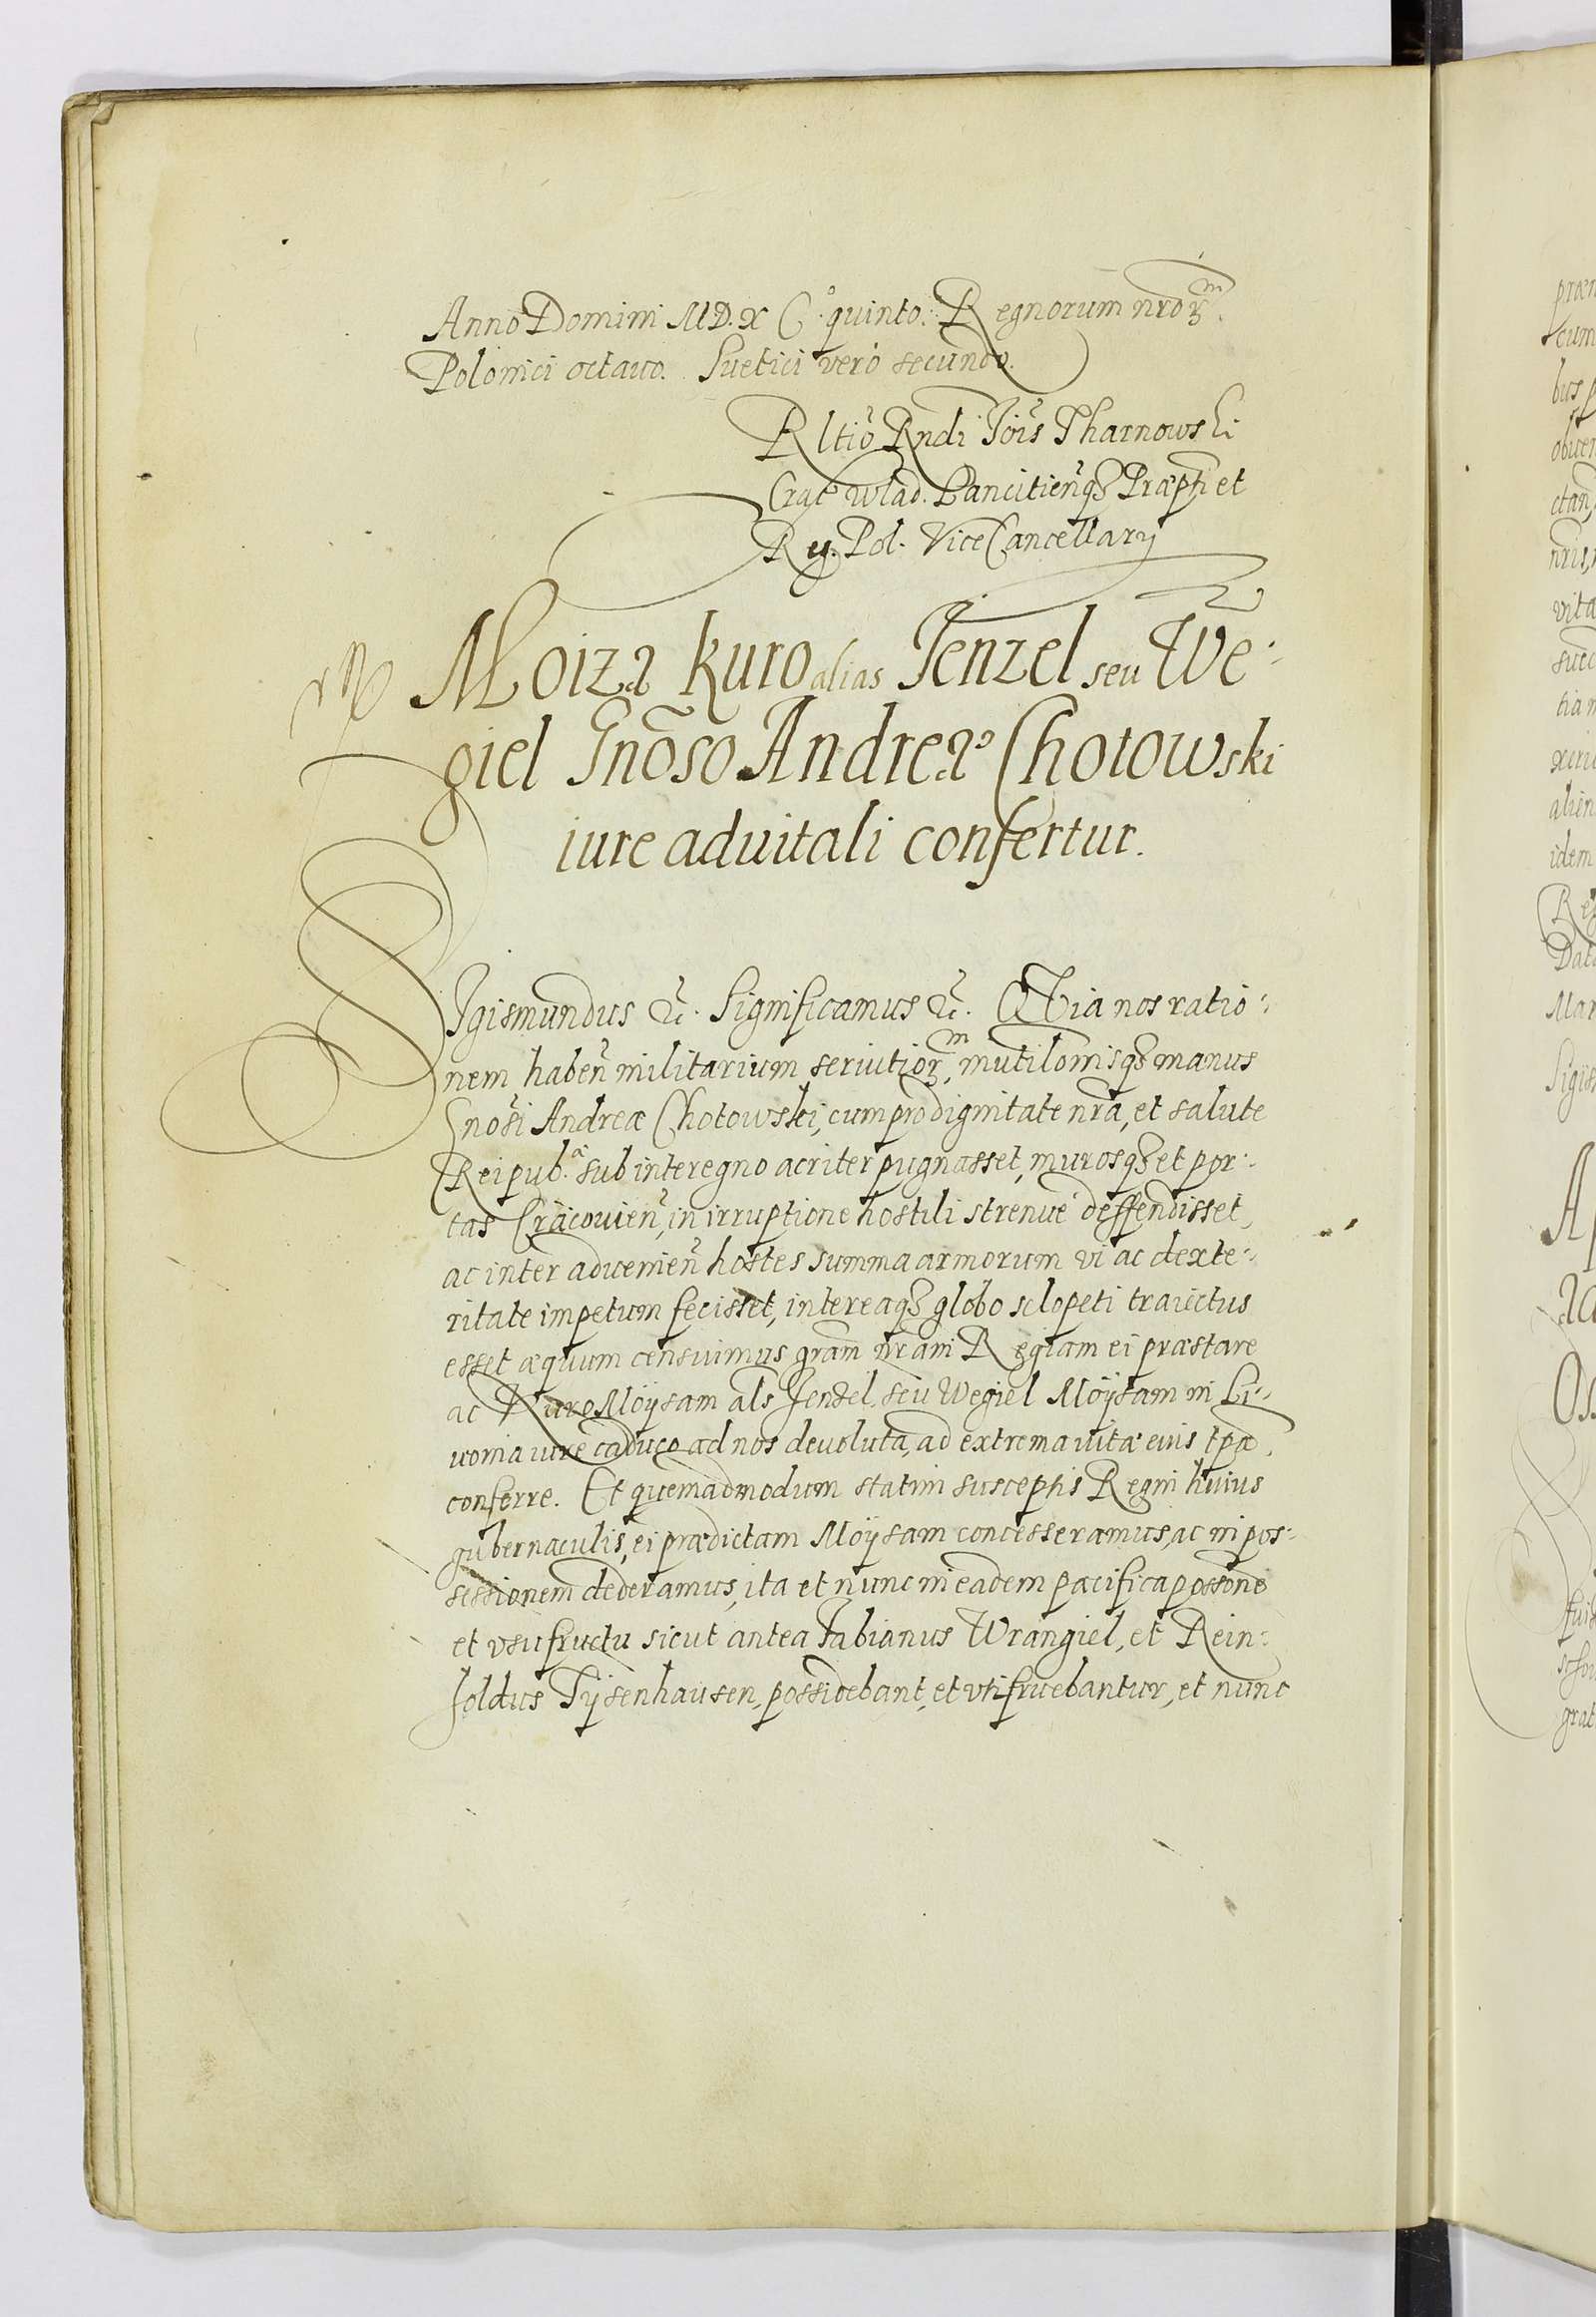 Anno Domini MD.XC.° quinto. Regnorum nr̃orꝫm.
Polonici octavo. Suetici verò secundo.
Rltiõ Rndi Joĩs Tharnowski
Crac̃ Wlad. Lancitieñqꝫ Præpti et
Reg. Pol. ViceCancellarÿ
Moiza Kuro alias Jenzel seu We:
giel Gnõso Andreæ Chotowski
iure aduitali confertur.
SIgismundus &c̃. Significamus &c̃. Quia nos ratio:
nem habeñ militarium seruitiorꝫm, mutilonisqꝫ manus
Gnosi Andreæ Chotowski, cum pro dignitate nr̃a, et salute
Reipub.ᶜᵃ sub interegno acriter pugnasset, murosqꝫ et por:
tas Cracouieñ, in irruptione hostili strenuè deffendisset,
ac inter adueniẽn hostes summa armorum vi ac dexte:
ritate impetum fecisset, intereaqꝫ globo sclopeti traiectus
esset æquum censuimus gram̃ nr̃am Regiam ei præstare
ac Kuro Moÿsam als Jendel, seu Wegiel Moÿsam in Li:
uonia iure caduco ad nos deuoluta, ad extrema vitæ eius tp̃a
conferre. Et quemadmodum statim susceptis Regni huius
gubernaculis, ei prædictam Moÿsam concesseramus, ac in pos:
sessionem dederamus, ita et nunc in eadem pacifica possone
et vsufructu sicut antea Fabianus Wrangiel, et Rein:
holdus Tÿsenhausen, possidebant, et vtifruebantur, et nunc